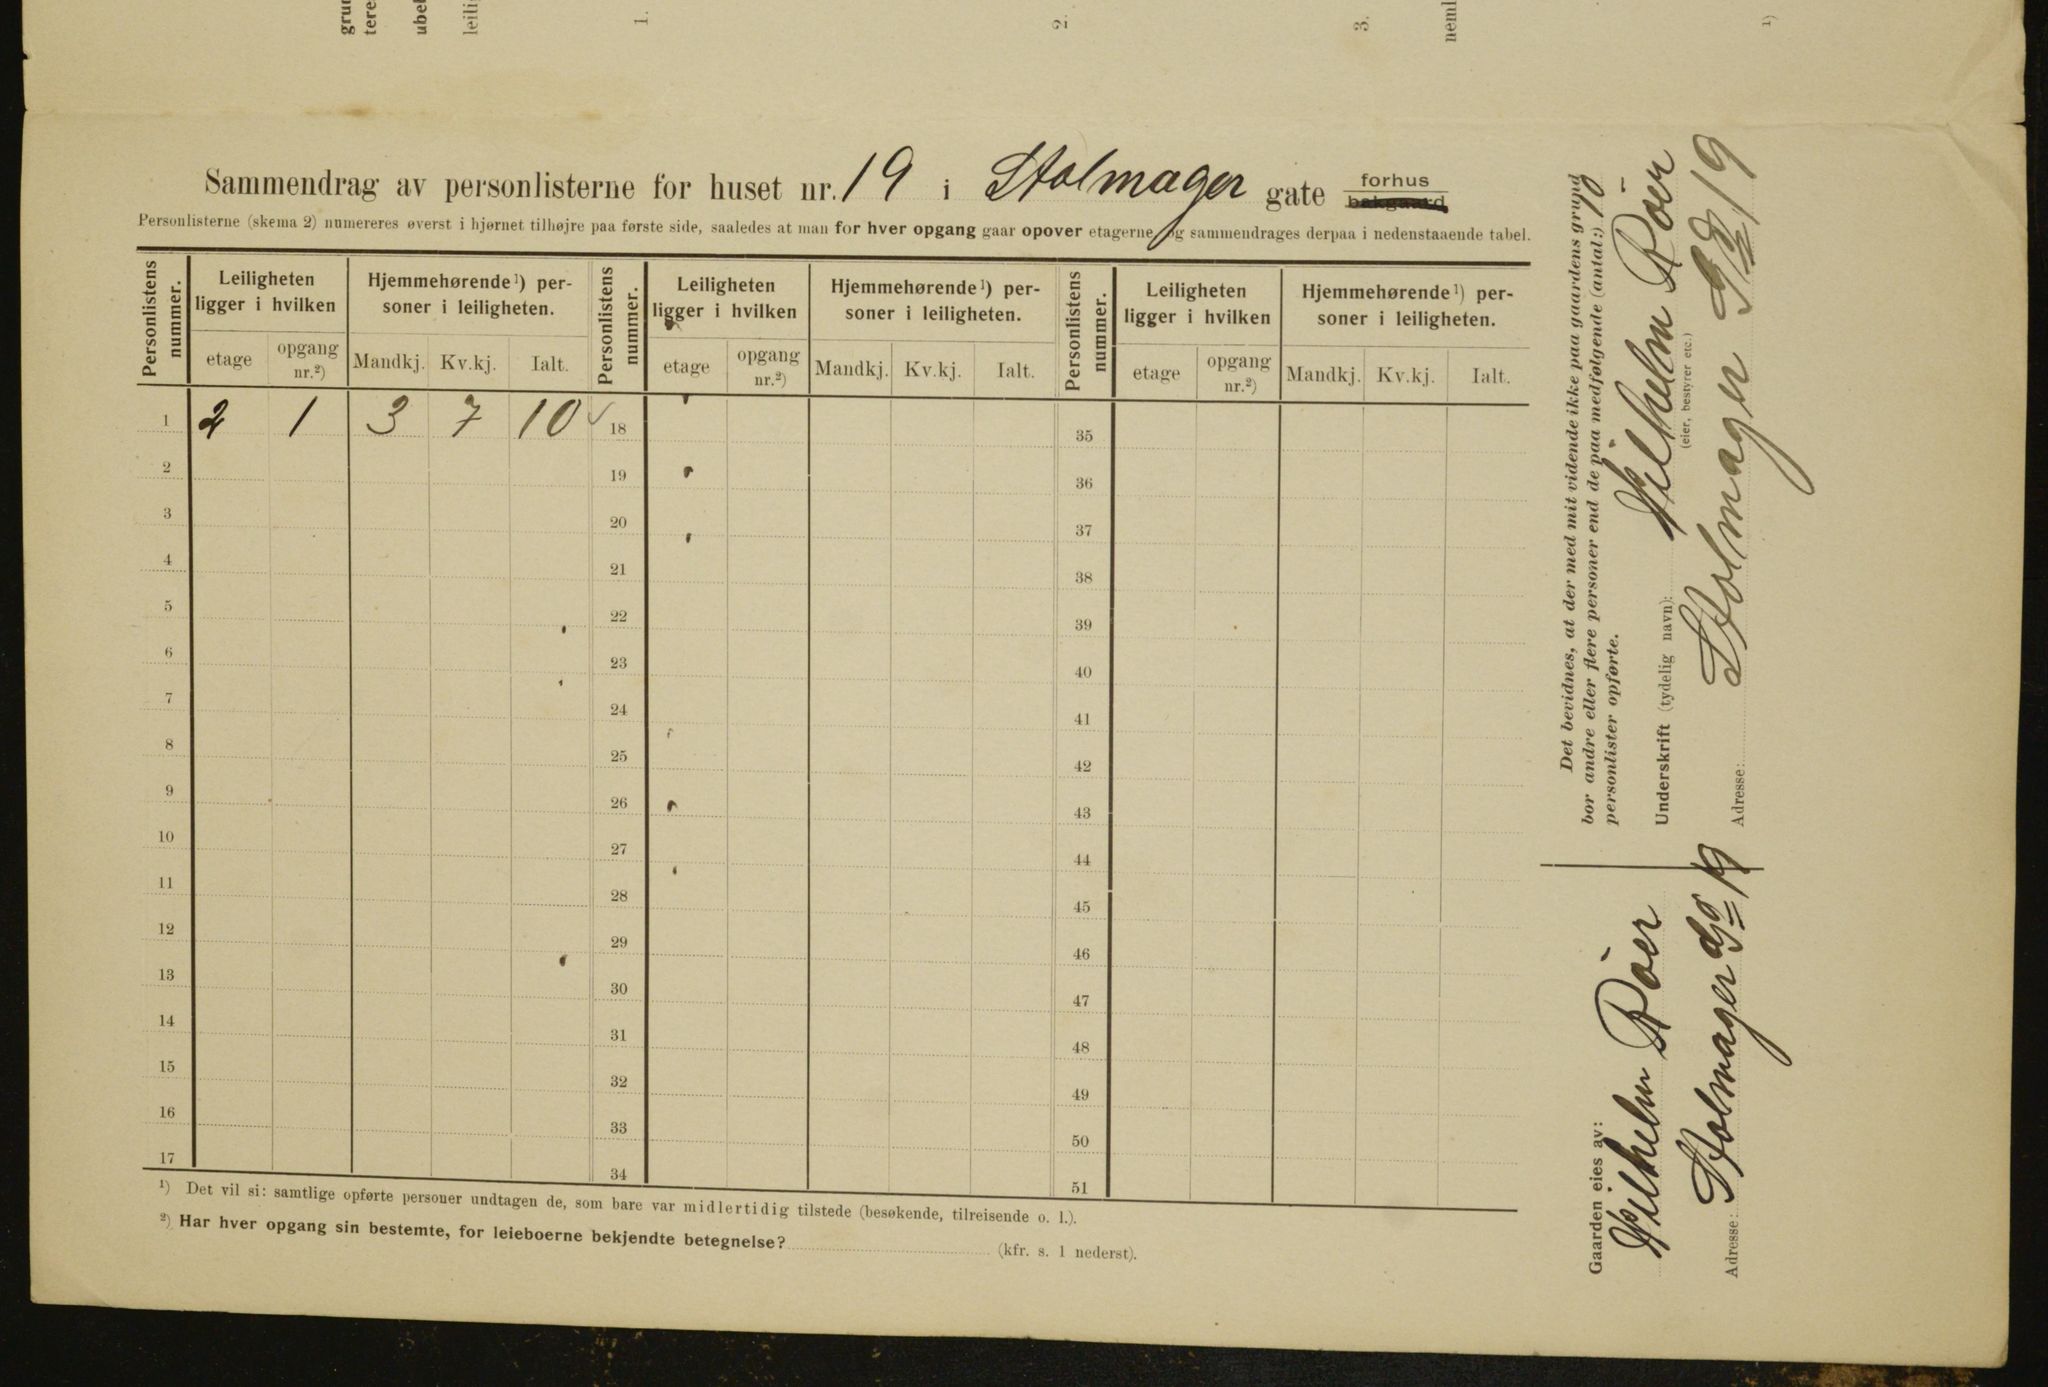 grun
tere
ubel
leilig
1.
2.
3.
neml
1)
Sammendrag av personlisterne for huset nr. 19 i Stolmager gate forhus
bakgaard
Personlisterne (skema 2) numereres øverst i hjørnet tilhøjre paa første side, saaledes at man for hver opgang gaar opover etagerne og sammendrages derpaa i nedenstaaende tabel.
Personlistens nummer. Leiligheten ligger i hvilken Hjemmehørende¹) personer i leiligheten. Personlistens nummer. Leiligheten ligger i hvilken Hjemmehørende¹) personer i leiligheten. Personlistens nummer. Leiligheten ligger i hvilken Hjemmehørende¹) personer i leiligheten.
etage opgang nr.²) Mandkj. Kv.kj. Ialt. etage opgang nr.²) Mandkj. Kv.kj. Ialt. etage opgang nr.²) Mandkj. Kv.kj. Ialt.
1 2 1 3 7 10 ✓ 18 35
2 19 36
3 20 37
4 21 38
5 22 39
6 23 40
7 24 41
8 25 42
9 26 43
10 27 44
11 28 45
12 29 46
13 30 47
14 31 48
15 32 49
16 33 50
17 34 51
¹) Det vil si: samtlige opførte personer undtagen de, som bare var midlertidig tilstede (besøkende, tilreisende o. l.).
²) Har hver opgang sin bestemte, for leieboerne bekjendte betegnelse? (kfr. s. 1 nederst).
Det bevidnes, at der med mit vidende ikke paa gaardens grund
bor andre eller flere personer end de paa medfølgende (antal:) 10
personlister opførte.
Underskrift (tydelig navn): Wilhelm Röer
(eier, bestyrer etc.)
Adresse: Stolmager Gd 19
Gaarden eies av:
Wilhelm Röer
Adresse: Stolmager gd 19